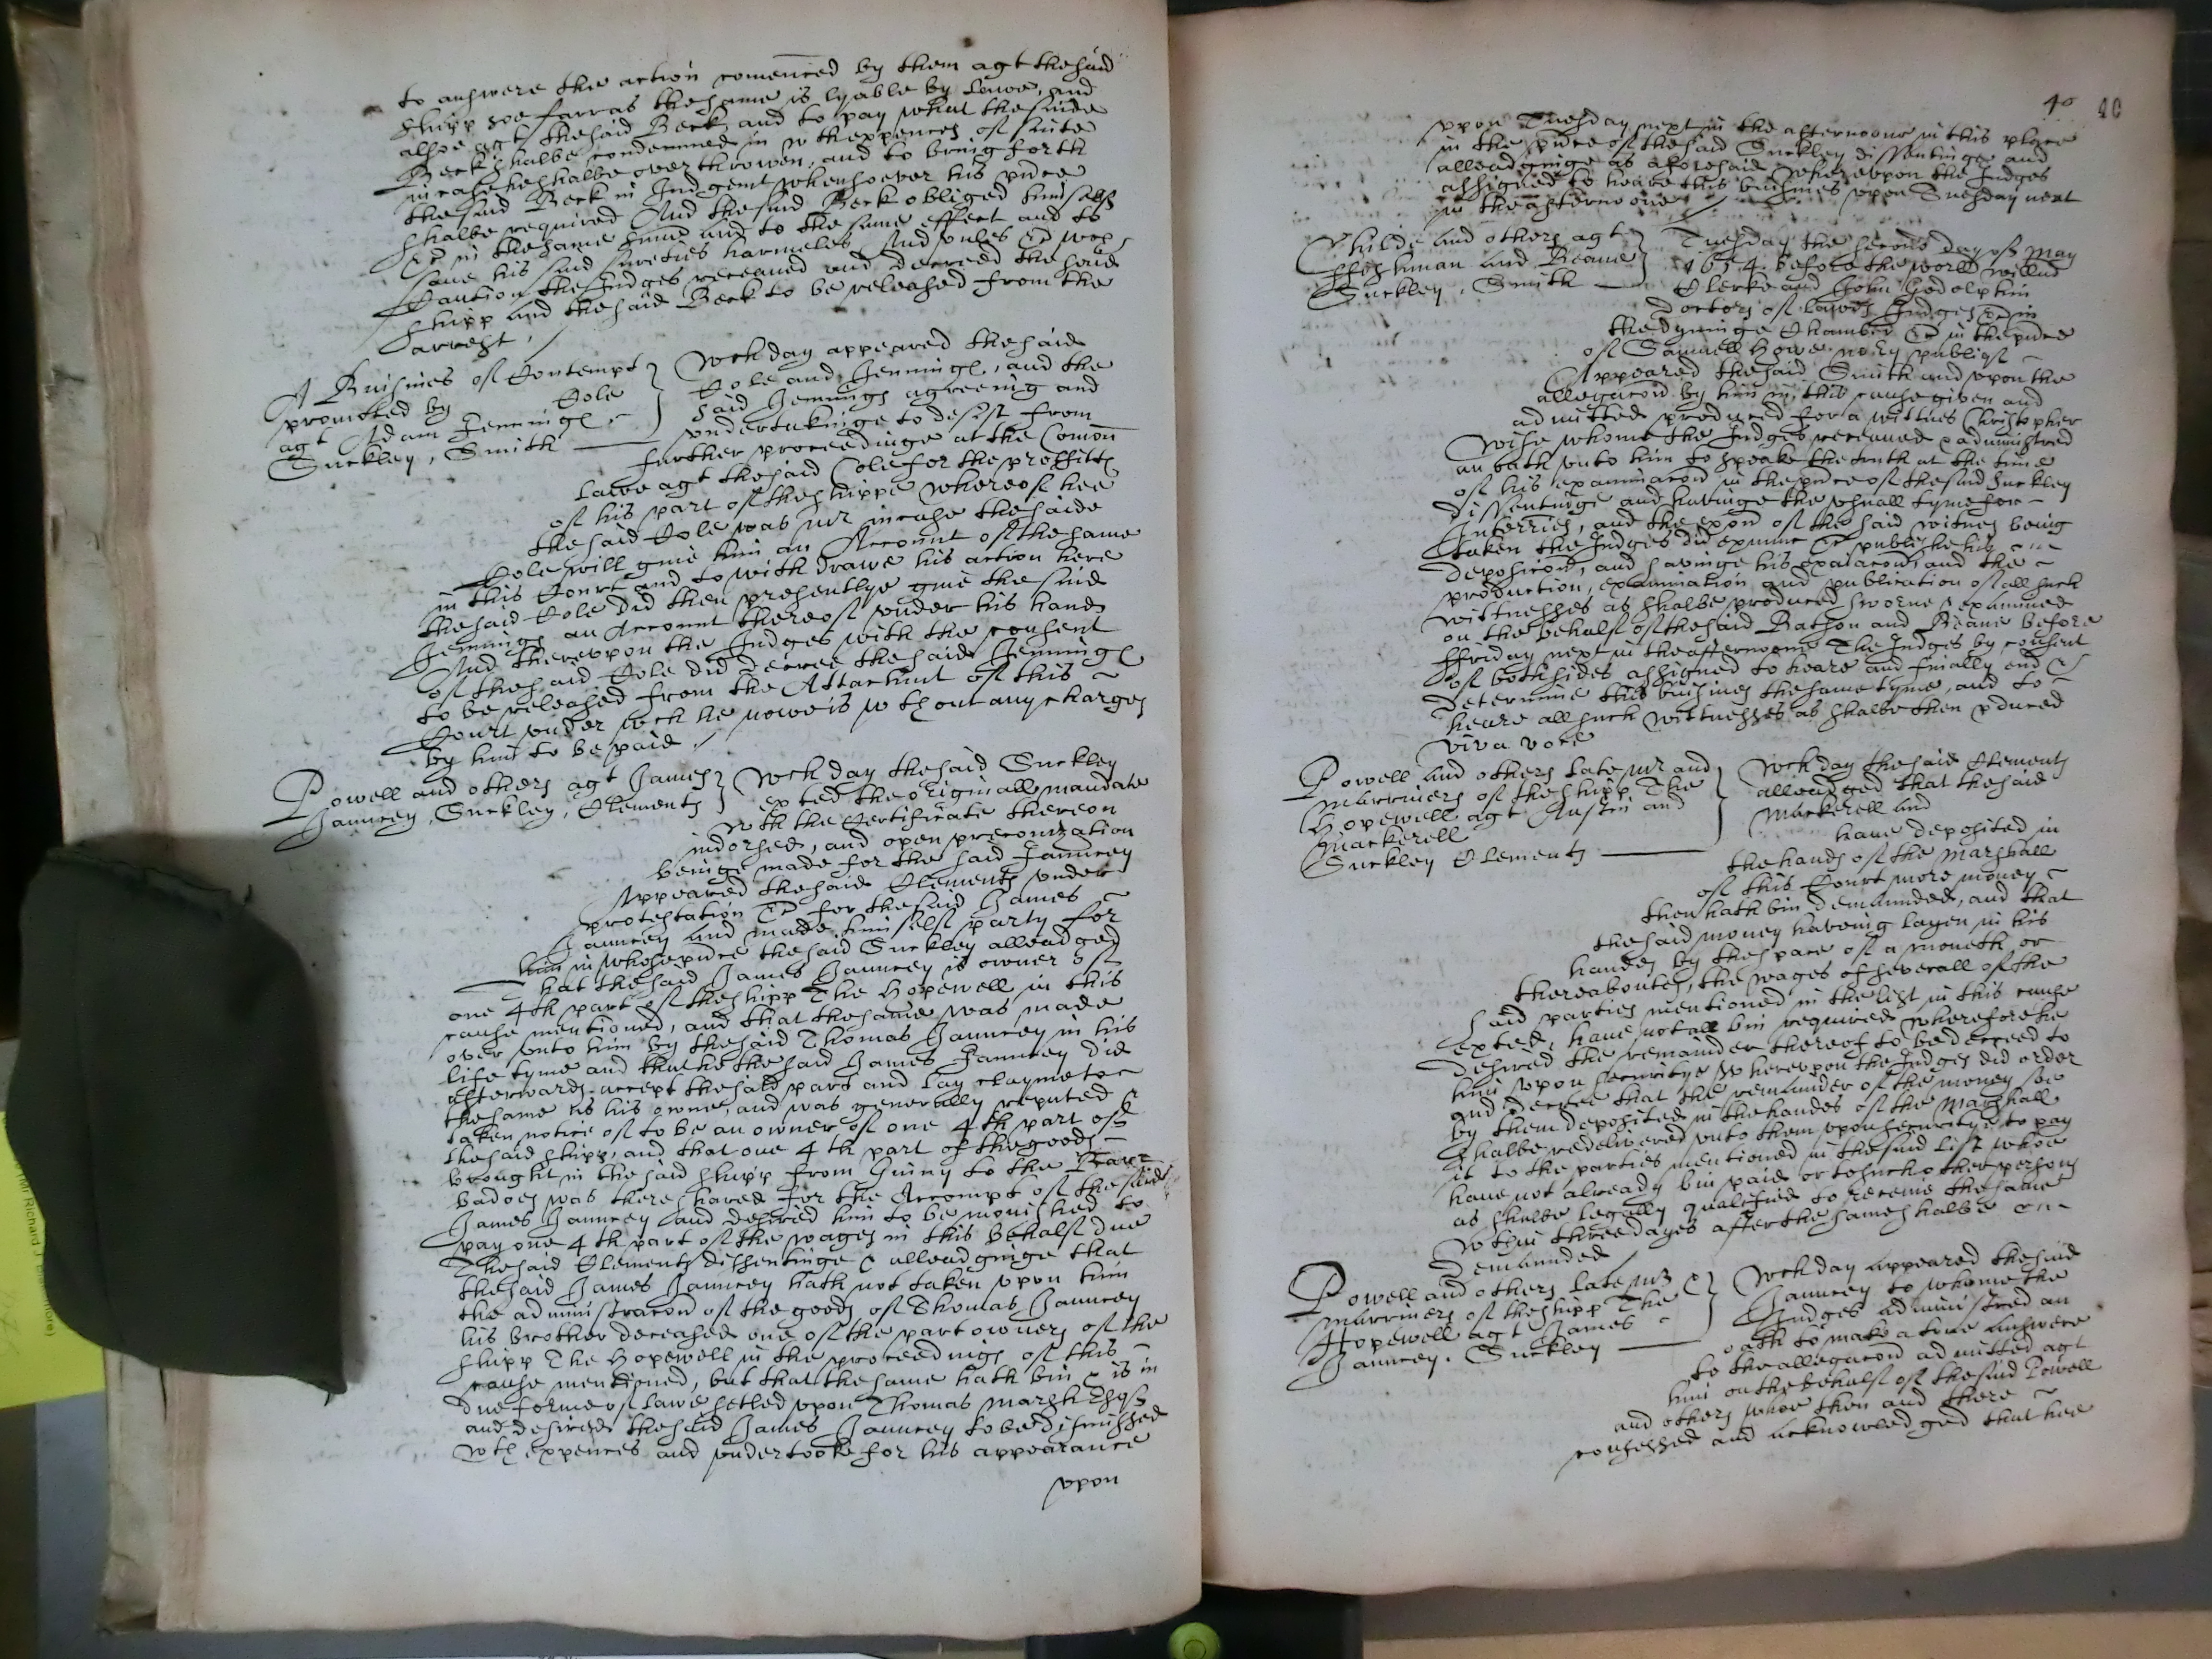 to answere the action comenced by them agt the said
shipp soe farr as the same is lyable by lawe, and
alsoe agt the said Beck and to pay what the saide
Beck shalbe condemned in wth expences of suite
in case he shalbe overthrowen, and to bring forth
the said Beck in Judgemt whensoever his pnce
shalbe required And the said Beck obliged himselfe
&c in the same summe and to the same effect and to
save his said sureties harmeles And unles &c wch
Caution the Judges receaued and decreed the said
shipp and the said Beck to be released from the
arrest,
A Buisines of Contempt
promoted by Cole
agt Adam Jennings
Suckley, Smith
Wch day appeared the said
Cole and Jennings, and the
said Jennings agreeing and
undertakinge to desist from
further proceedinge at the Comon
lawe agt the said Cole for the proffitts
of his part of the shippe whereof hee
the said Cole was mr in case the saide
Cole will giue him an Account of the same
in this Court and to withdrawe his action here
the said Cole did then presentlye giue the said
Jennings an Account thereof under his hand
And thereupon the Judges with the consent
of the said Cole did decree the said Jennings
to be released from the Attachmt of this
Court under wch he nowe is wthout any charges
by him to be paid
Powell and others agt James
Jauncey, Suckley, Clements
Wch day the said Suckley
exted the originall mandate
wth the Certificate thereon
indorsed, and open preconization
beinge made for the said Jauncey
Appeared the said Clements under
protestation &c for the said James
Jauncey and made himself party for
him in whose pnce the said Suckley alleadged
that the said James Jauncey is owner of
one 4th part of the shipp The Hopewell in this
cause mentioned, and that the same was made
over unto him by the said Thomas Jauncey in his
life tyme and that he the said James Jauncey did
afterwards accept the said part and lay clayme to
the same as his owne, and was generally reputed &
taken notice of to be an owner of one 4th part of
the said shipp, and that one 4th part of the goods
brought in the said shipp from Guiny to the Bar
badoes was there shared for the Accompt of the said
James Jauncey and desired him to be monished to
pay one 4th part of the wages in this behalf due
The said Clements dissentinge & alleadginge that
the said James Jauncey hath not taken upon him
the administracon of the goods of Thomas Jauncey
his brother deceased one of the part owners of the
shipp The Hopewell in the proceedings of this
cause mentioned, but that the same hath bin & is in
due forme of lawe setled upon Thomas Marsh
and desired the said James Jauncey to be dismissed
wth expences and undertooke for his appearance
upon
40 40
upon Tuesday next in the afternoone in this place
in the pnce of the said Suckley dissentinge and
alleadginge as aforesaid whereupon the Judges
assigned to heare this buisines upon Tuesday next
in the afternoone
Childe and others agt
ffishman and Beane
Suckley, Smith
Tuesday the second day of May
1654. before the worll Willm
Clerke and John Godolphin
doctors of lawes Judges &c in
the dyninge Chamber &c in the pnce
of Samuell Howe no:ry publiqe
Appeared the said Smith and upon the
allegacon by him in this cause given and
admitted produced for a wittnes Christopher
Wise whome the Judges receaued & administred
an oath unto him to speake the truth at the time
of his examinacon in the pnce of the said Suckley
dissentinge and havinge the usuall tyme for
Interries, and the expon of the said witnes being
taken the Judges did examine & publishe his
deposicon, and savinge his expacon, and the
production, examination and publication of all such
wittnesses as shalbe produced sworne & examined
on the behalf of the said Batson and Beane before
ffriday next in the afternoone The Judges by consent
of both sides assigned to heare and finially end &
determine this buisines the same tyme, and to
heare all such wittnesses as shalbe then pduced
viva voce
Powell and others late mr and
marriners of the shipp The
Hopewell agt Austin and
Mackerell
Suckley Clements
Wch day the said Clements
alleadged that the said
Mackerell and
haue deposited in
the hands of the Marshall
of this Court more money
then hath bin demaunded, and that
the said money haveing layen in his
handes by the space of a moneth or
thereaboutes, the wages of severall of the
said parties mentioned in the list in this cause
exted, haue not all bin required wherefore he
desired the remainder thereof to be decreed to
him upon securitye Whereupon the Judges did order
and decree that the remainder of the money soe
by them deposited in the handes of the Marshall
shalbe redelivered unto them upon securitye to pay
it to the parties mentioned in the said list whoe
haue not already bin paid or to such other persons
as shalbe legally qualified to receive the same
wthin three dayes after the same shalbe
demaunded
Powell and others late mr &
marriners of the shipp The
Hopewell agt James
Jauncey. Suckley
Wch day appeared the said
Jauncey to whome the
Judges administred an
oath to make a true answere
to the allegacon admitted agt
him on the behalf of the said Powell
and others whoe then and there
confessed and acknowledged that hee